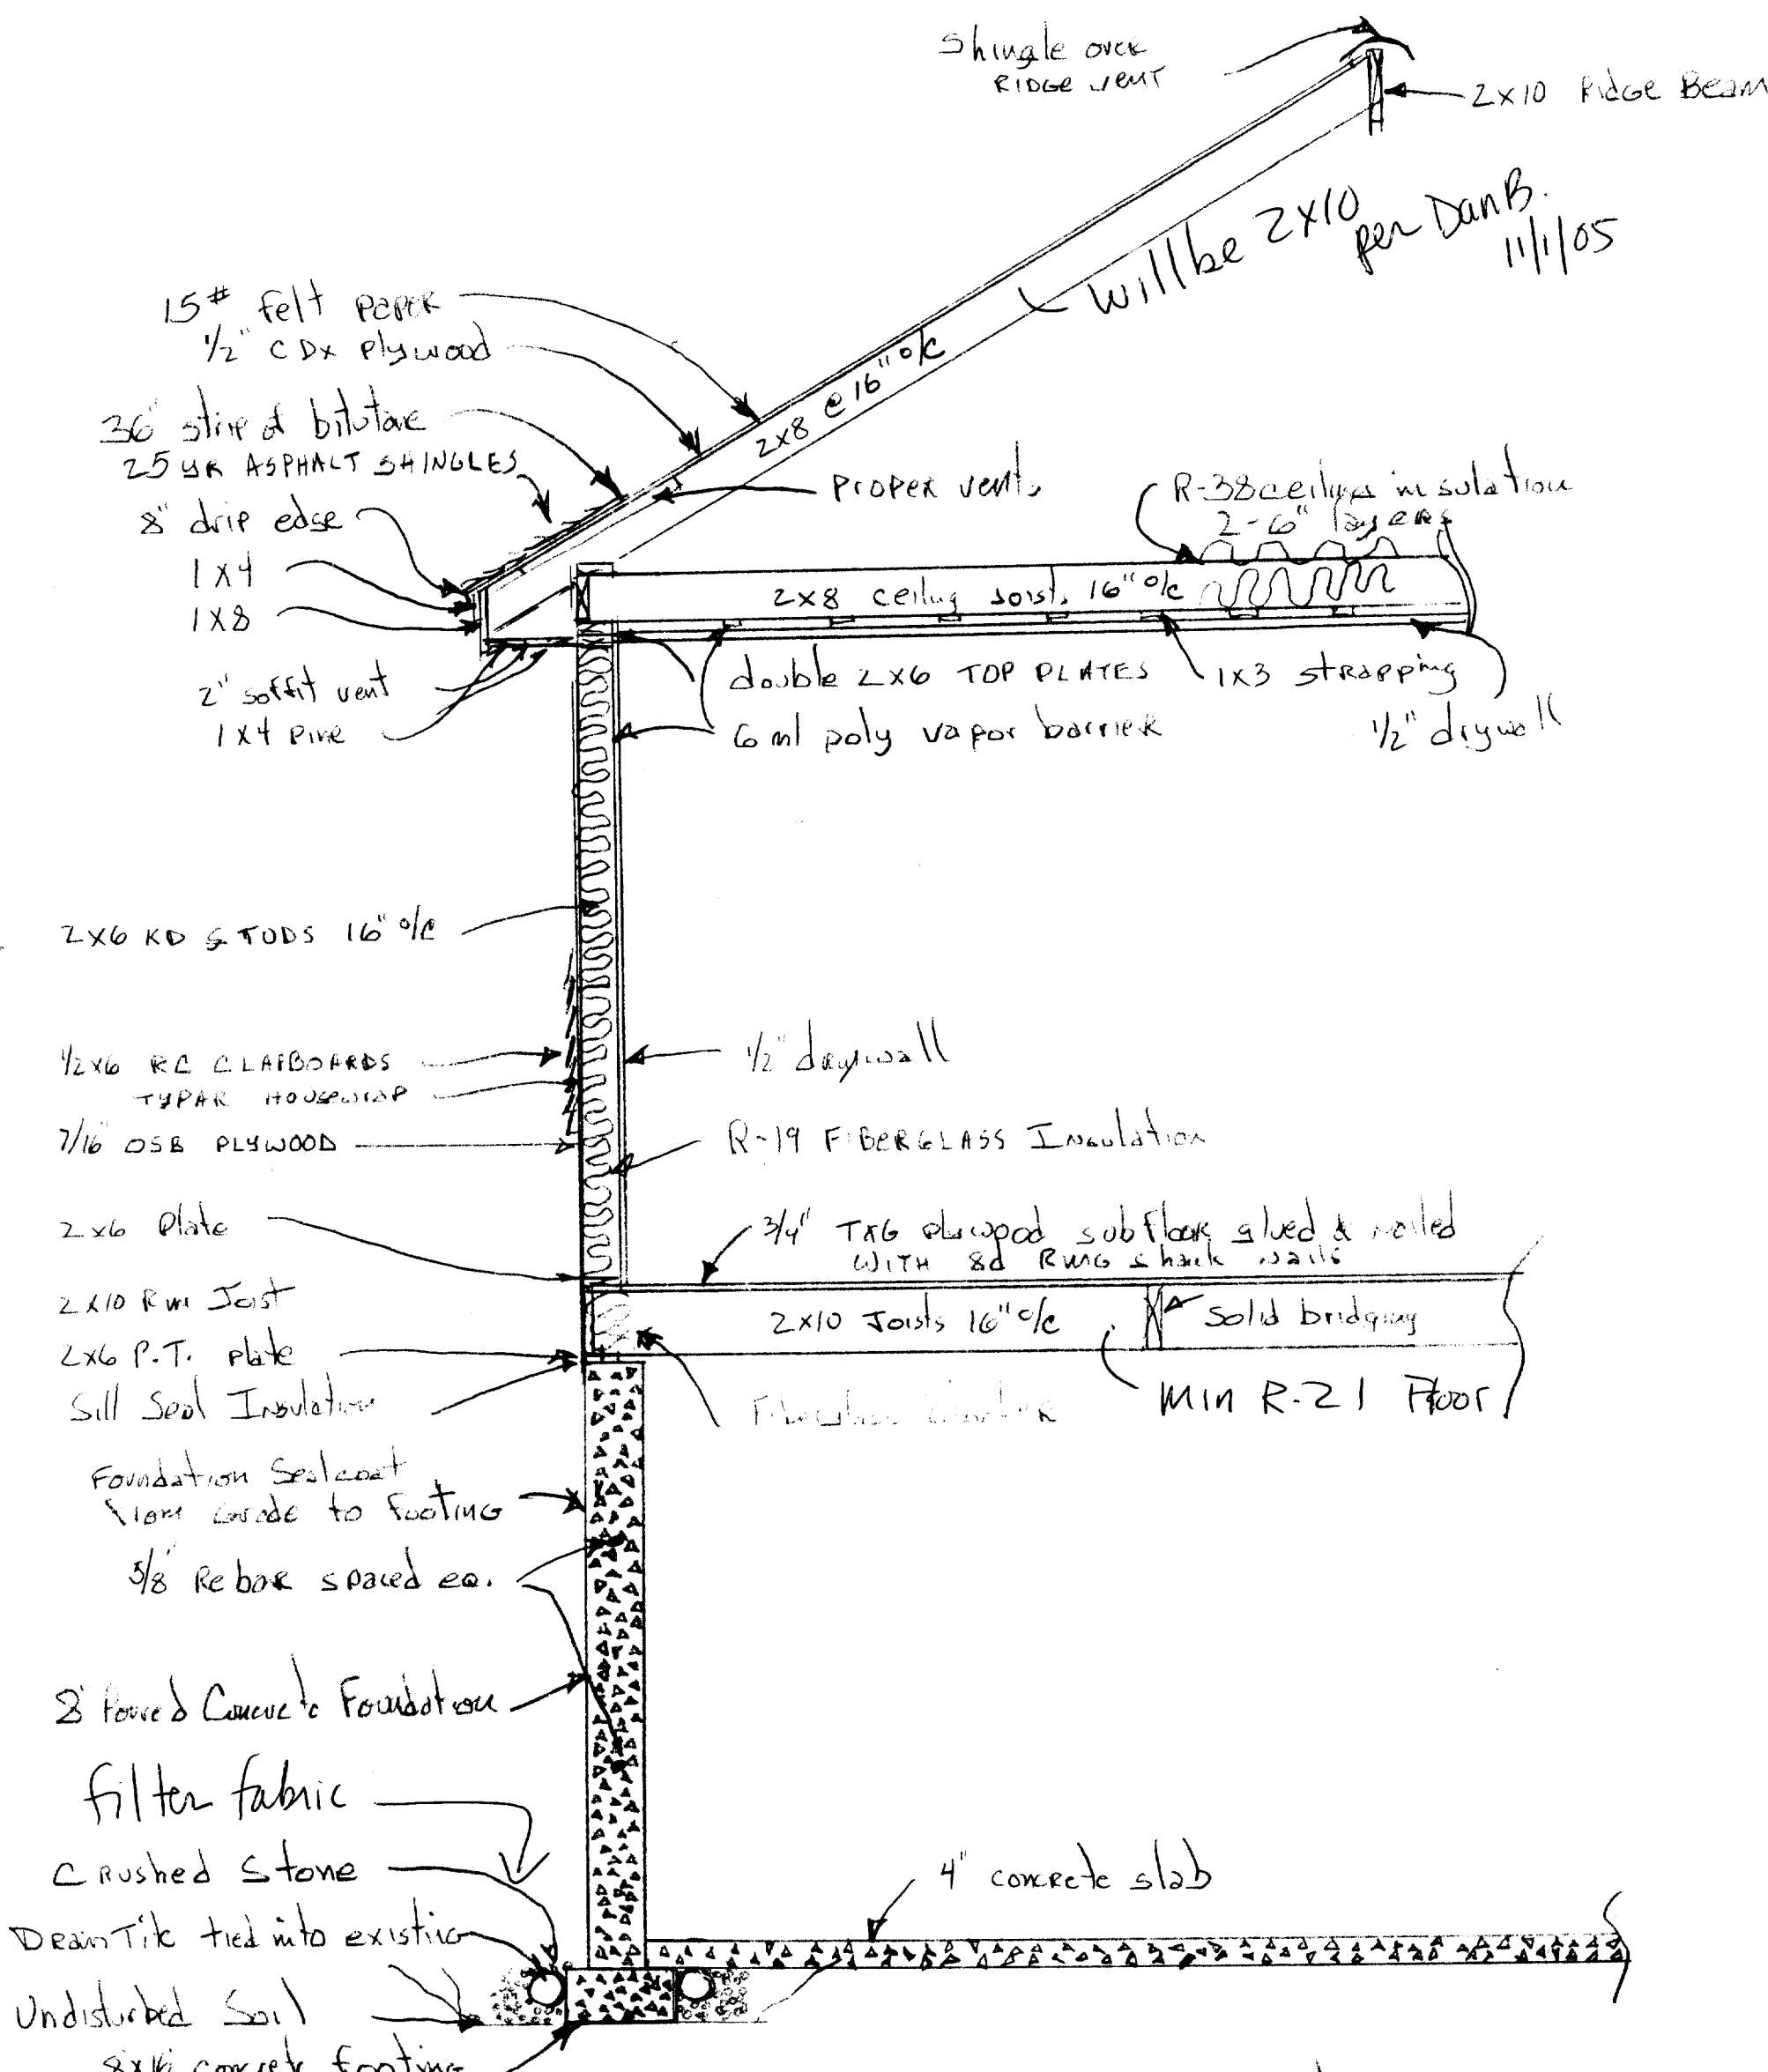 Shingle over
RIDGE VENT
2x10 Ridge Beam
Will be 2x10
per Dan B.
11/1/05
15# felt paper
1/2" CDX plywood
36" strip of
25 YR ASPHALT SHINGLES
8" drip edge
1x4
1x8
2x8 @ 16" o/c
Proper vents
R-38 ceiling insulation
2-6" layers
2x8 ceiling joists 16" o/c
2" soffit vent
1x4 Pine
double 2x6 TOP PLATES
1x3 strapping
6 ml poly vapor barrier
1/2" drywall
2x6 KD STUDS 16" o/c
1/2x6 RC CLAPBOARDS
TYPAR HOUSEWRAP
7/16" OSB PLYWOOD
1/2" drywall
R-19 FIBERGLASS Insulation
2x6 Plate
3/4" T&G plywood subfloor, glued & nailed
WITH 8d RING shank nails
2x10 Rim Joist
2x6 P.T. plate
Sill Seal Insulation
2x10 Joists 16" o/c
Solid bridging
Min R-21 Floor
Fiberglass
Foundation Sealcoat
from grade to footing
5/8" Rebar spaced eq.
8" Poured Concrete Foundation
filter fabric
Crushed Stone
Drain Tile tied into existing
Undisturbed Soil
8x16 concrete footing
4" concrete slab